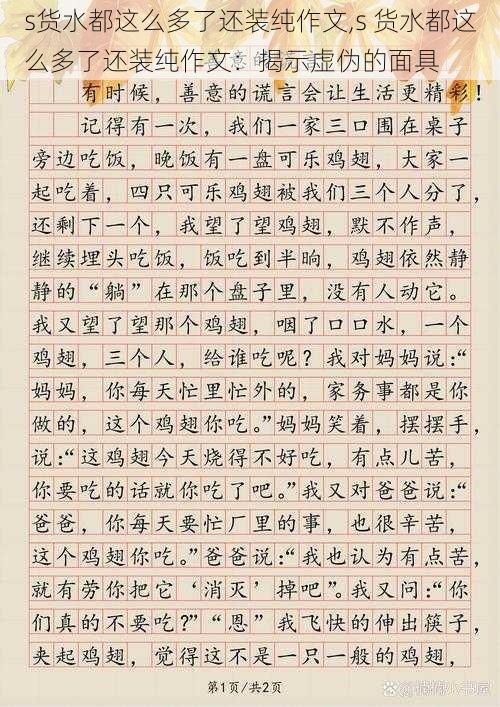 s货水都这么多了还装纯作文,s 货水都这
么多了还装纯作文：揭示虚伪的面具
有时候，善意的谎言会让生活更精彩！
记得有一次，我们一家三口围在桌子
旁边吃饭，晚饭有一盘可乐鸡翅，大家一
起吃着，四只可乐鸡翅被我们三个人分了，
还剩下一个，我望了望鸡翅，默不作声，
继续埋头吃饭，饭吃到半晌，鸡翅依然静
静的“躺”在那个盘子里，没有人动它。
我又望了望那个鸡翅，咽了口口水，一个
鸡翅，三个人，给谁吃呢？我对妈妈说：“
妈妈，你每天忙里忙外的，家务事都是你
做的，这个鸡翅你吃。”妈妈笑着，摆摆手，
说：“这鸡翅今天烧得不好吃，有点儿苦，
你要吃的话就你吃了吧。”我又对爸爸说：“
爸爸，你每天要忙厂里的事，也很辛苦，
这个鸡翅你吃。”爸爸说：“我也认为有点苦，
就有劳你把它‘消灭’掉吧”。我又问：“你
们真的不要吃？”“恩”我飞快的伸出筷子，
夹起鸡翅，觉得这不是一只一般的鸡翅，
第1页/共2页